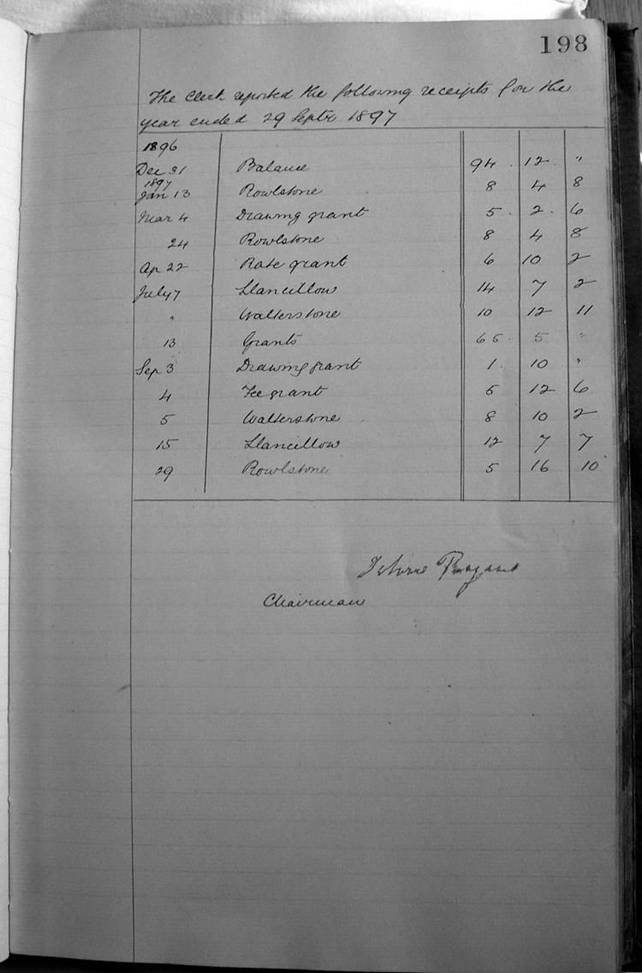 198
The Clerk reported the following receipts for the
year ended 29 Septr 1897
1896
Dec 31 Balance 94 . 12 . "
1897
Jan 13 Rowlstone 8 4 8
Mar 4 Drawing grant 5 . 2 . 6
24 Rowlstone 8 4 8
Ap 22 Rate grant 6 10 2
July 7 Llancillow 14 7 2
" Walterstone 10 12 11
13 Grants 65 . 5 "
Sep 3 Drawing grant 1 . 10 "
4 Fee grant 5 12 6
5 Walterstone 8 10 2
15 Llancillow 12 7 7
29 Rowlstone 5 16 10
Chairman